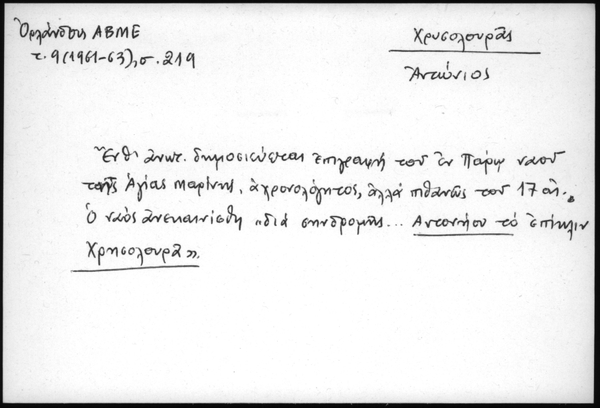 Ὀρλάνδος ΑΒΜΕ
τ. 9 (1961-63), σ. 219
Χρυσολουρᾶς
Ἀντώνιος
Ἔνθ' ἀνωτ. δημοσιεύεται ἐπιγραφή τοῦ ἐν Πάρῳ ναοῦ
τῆς Ἁγίας Μαρίνης, ἀχρονολόγητος, ἀλλά πιθανῶς τοῦ 17 αἰ.
Ὁ ναός ἀνεκαινίσθη "διά σηνδρομῆς... Αντονήου τό ἐπίκλιν
Χρησολουρᾶ".